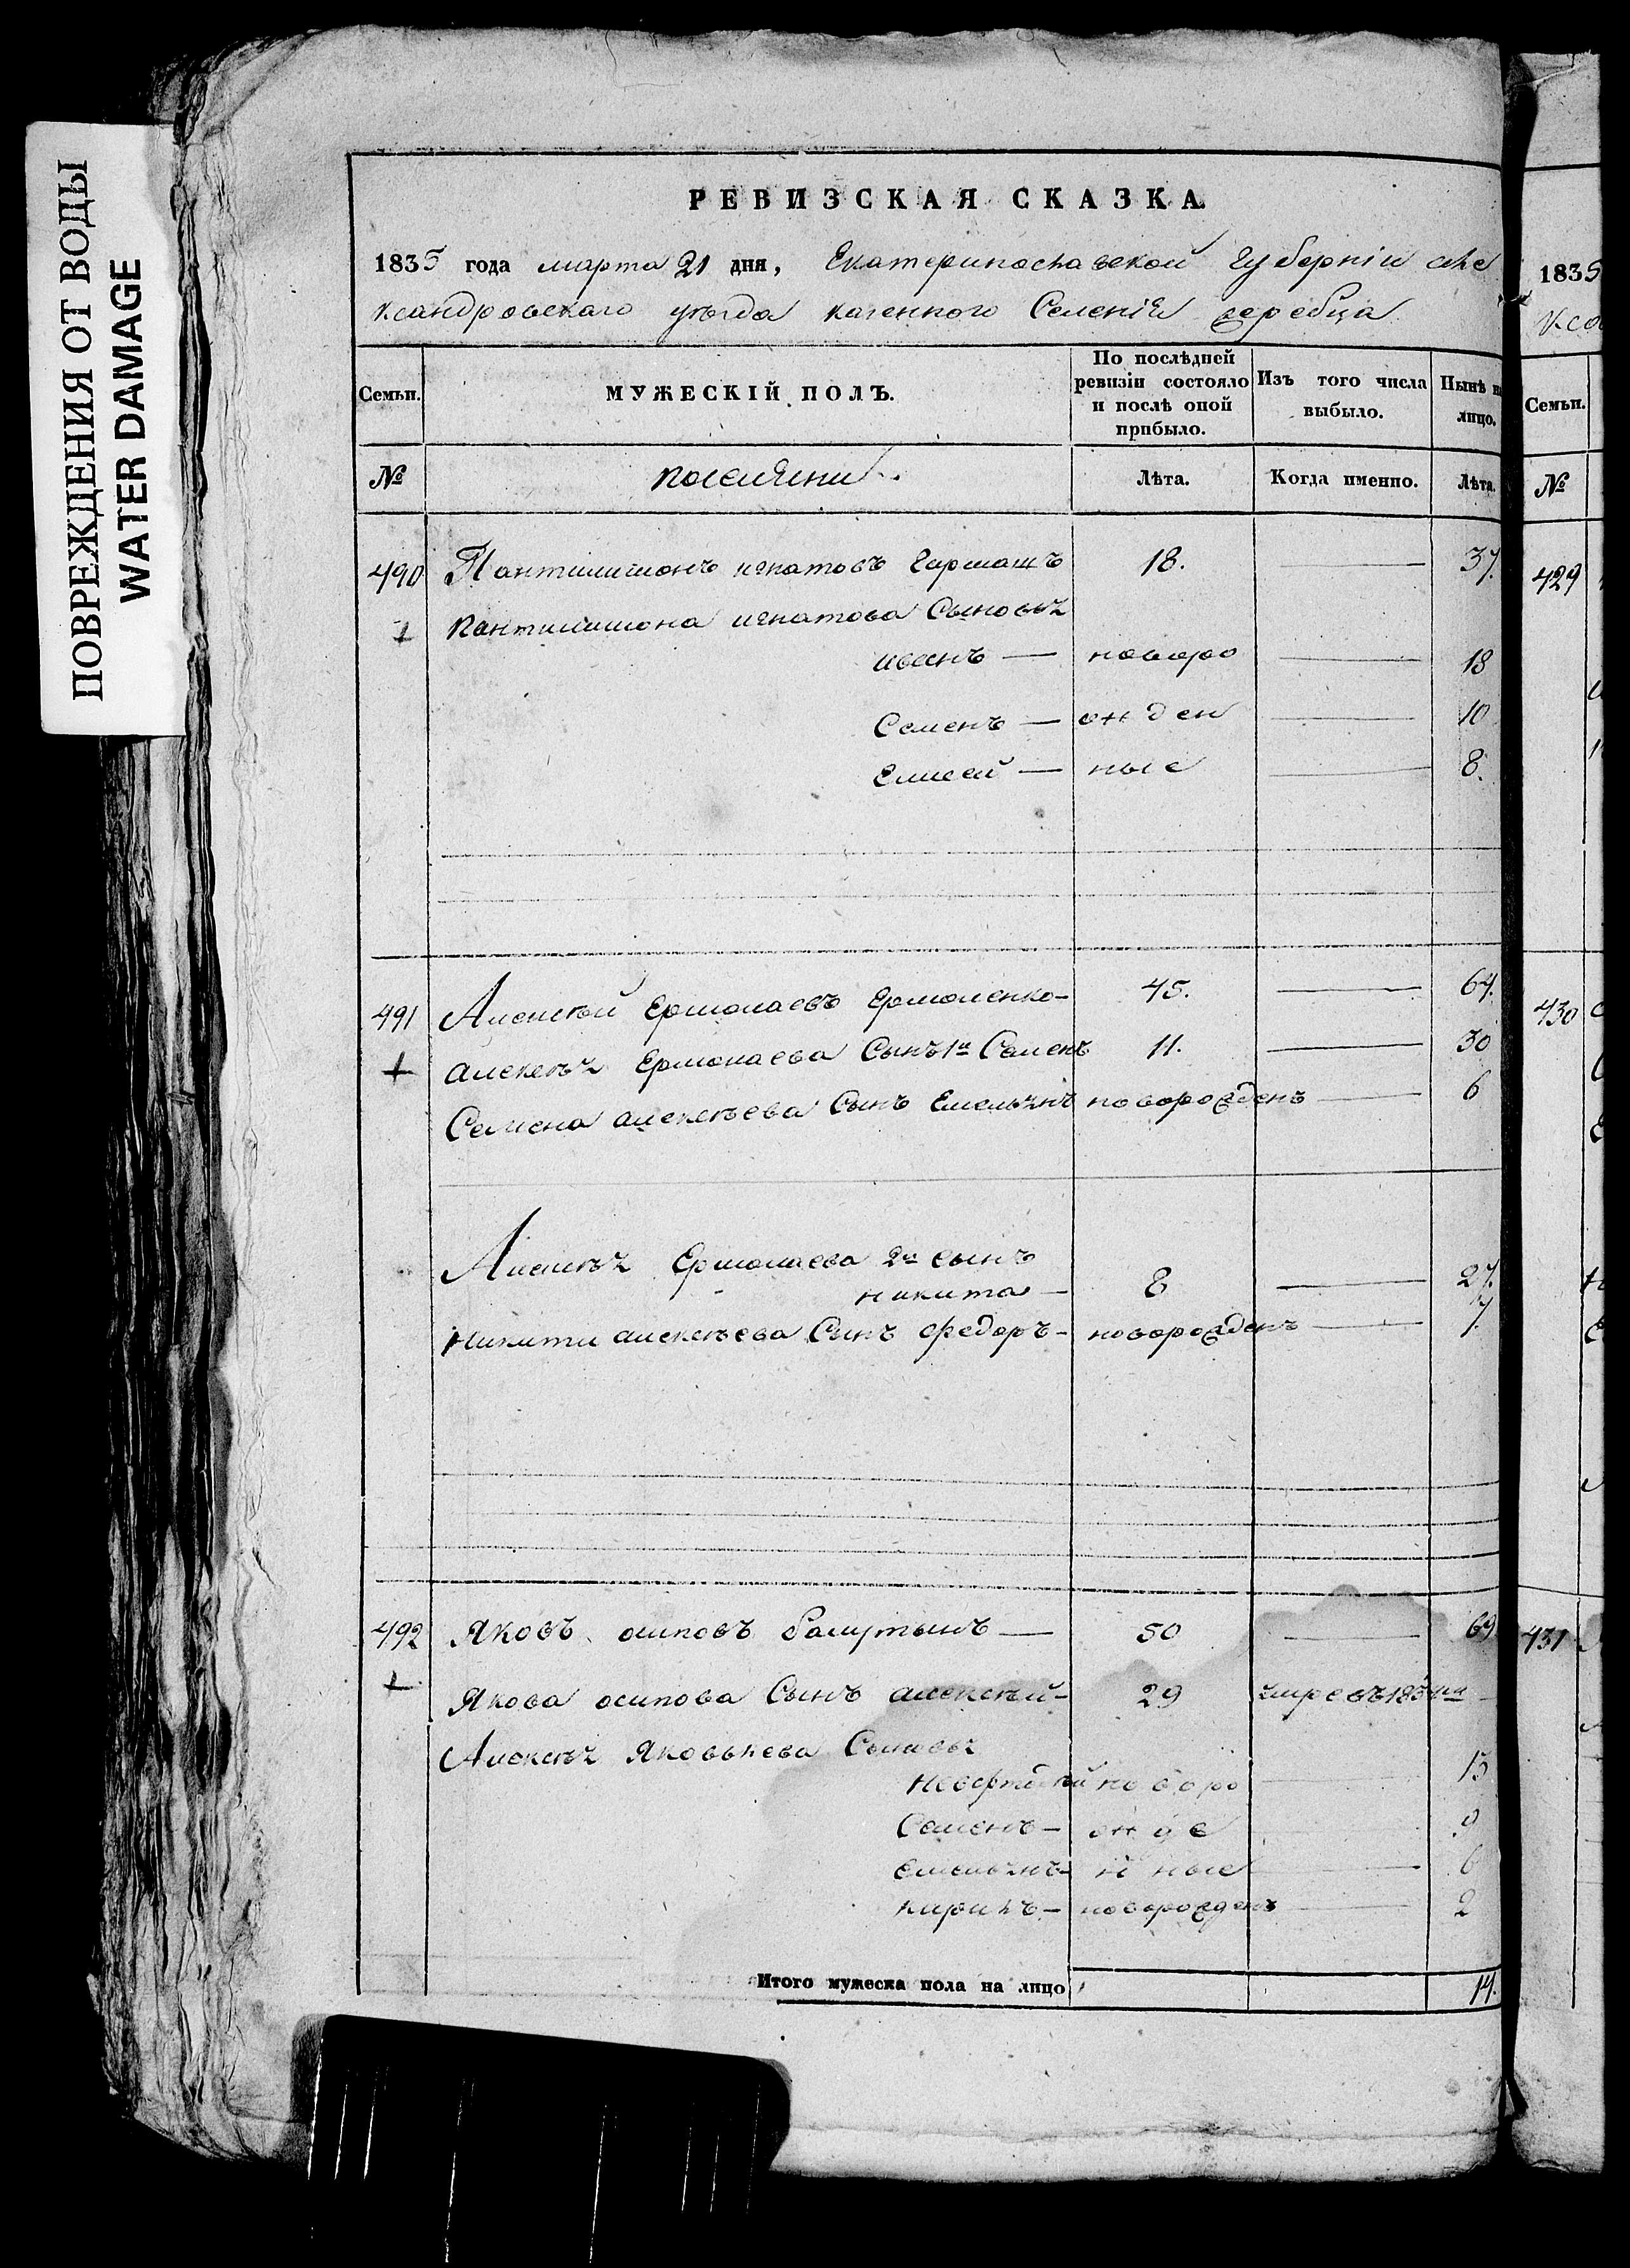 ПОВРЕЖДЕНИЯ ОТ ВОДЫ
WATER DAMAGE
РЕВИЗСКАЯ СКАЗКА.
1835 года марта 21 дня, Екатеринославской Губерніи але
ксандровскаго уѣзда казенного Селенія жеребца
Семьи. МУЖЕСКІЙ ПОЛЪ. По послѣдней ревизіи состояло и послѣ оной прибыло. Изъ того числа выбыло. Нынѣ на лицо.
№ поселяни Лѣта. Когда именно. Лѣта.
490 Пантилимонъ игнатовъ Гармашъ 18. — 37.
+ пантилимона игнатова Сыновья
иванъ — новоро — 18
Семенъ — жден — 10
Елисей — ные — 8.
491 Алексѣй Ермолаевъ Ермоленко 45. — 64.
+ алексѣя Ермолаева Сынъ 1й Семенъ 11. — 30
Семена алексѣева Сынъ Емельянъ новорожденъ — 6
Алексѣя Ермолаева 2й сынъ
никита — 8 — 27.
Никиты алексѣева Сынъ федоръ новорожденъ — 7.
492 Яковъ осиповъ — 50 — 69
+ Якова осипова Сынъ алексѣй 29 умре въ 1834м
Алексѣя Яковлева Сыновья
новоро — 15
Семенъ — жде 9
емельянъ н ные — 6
кирилъ — новорожденъ — 2
Итого мужеска пола на лицо 14.
1835
ксан
Семьи.
№
429
430
431